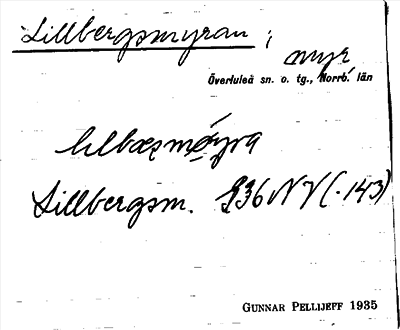 Lillbergsmyran ; myr
Överluleå sn. o. tg., Norrb. län
Lillbergsm. G36NV(·143)
GUNNAR PELLIJEFF 1935